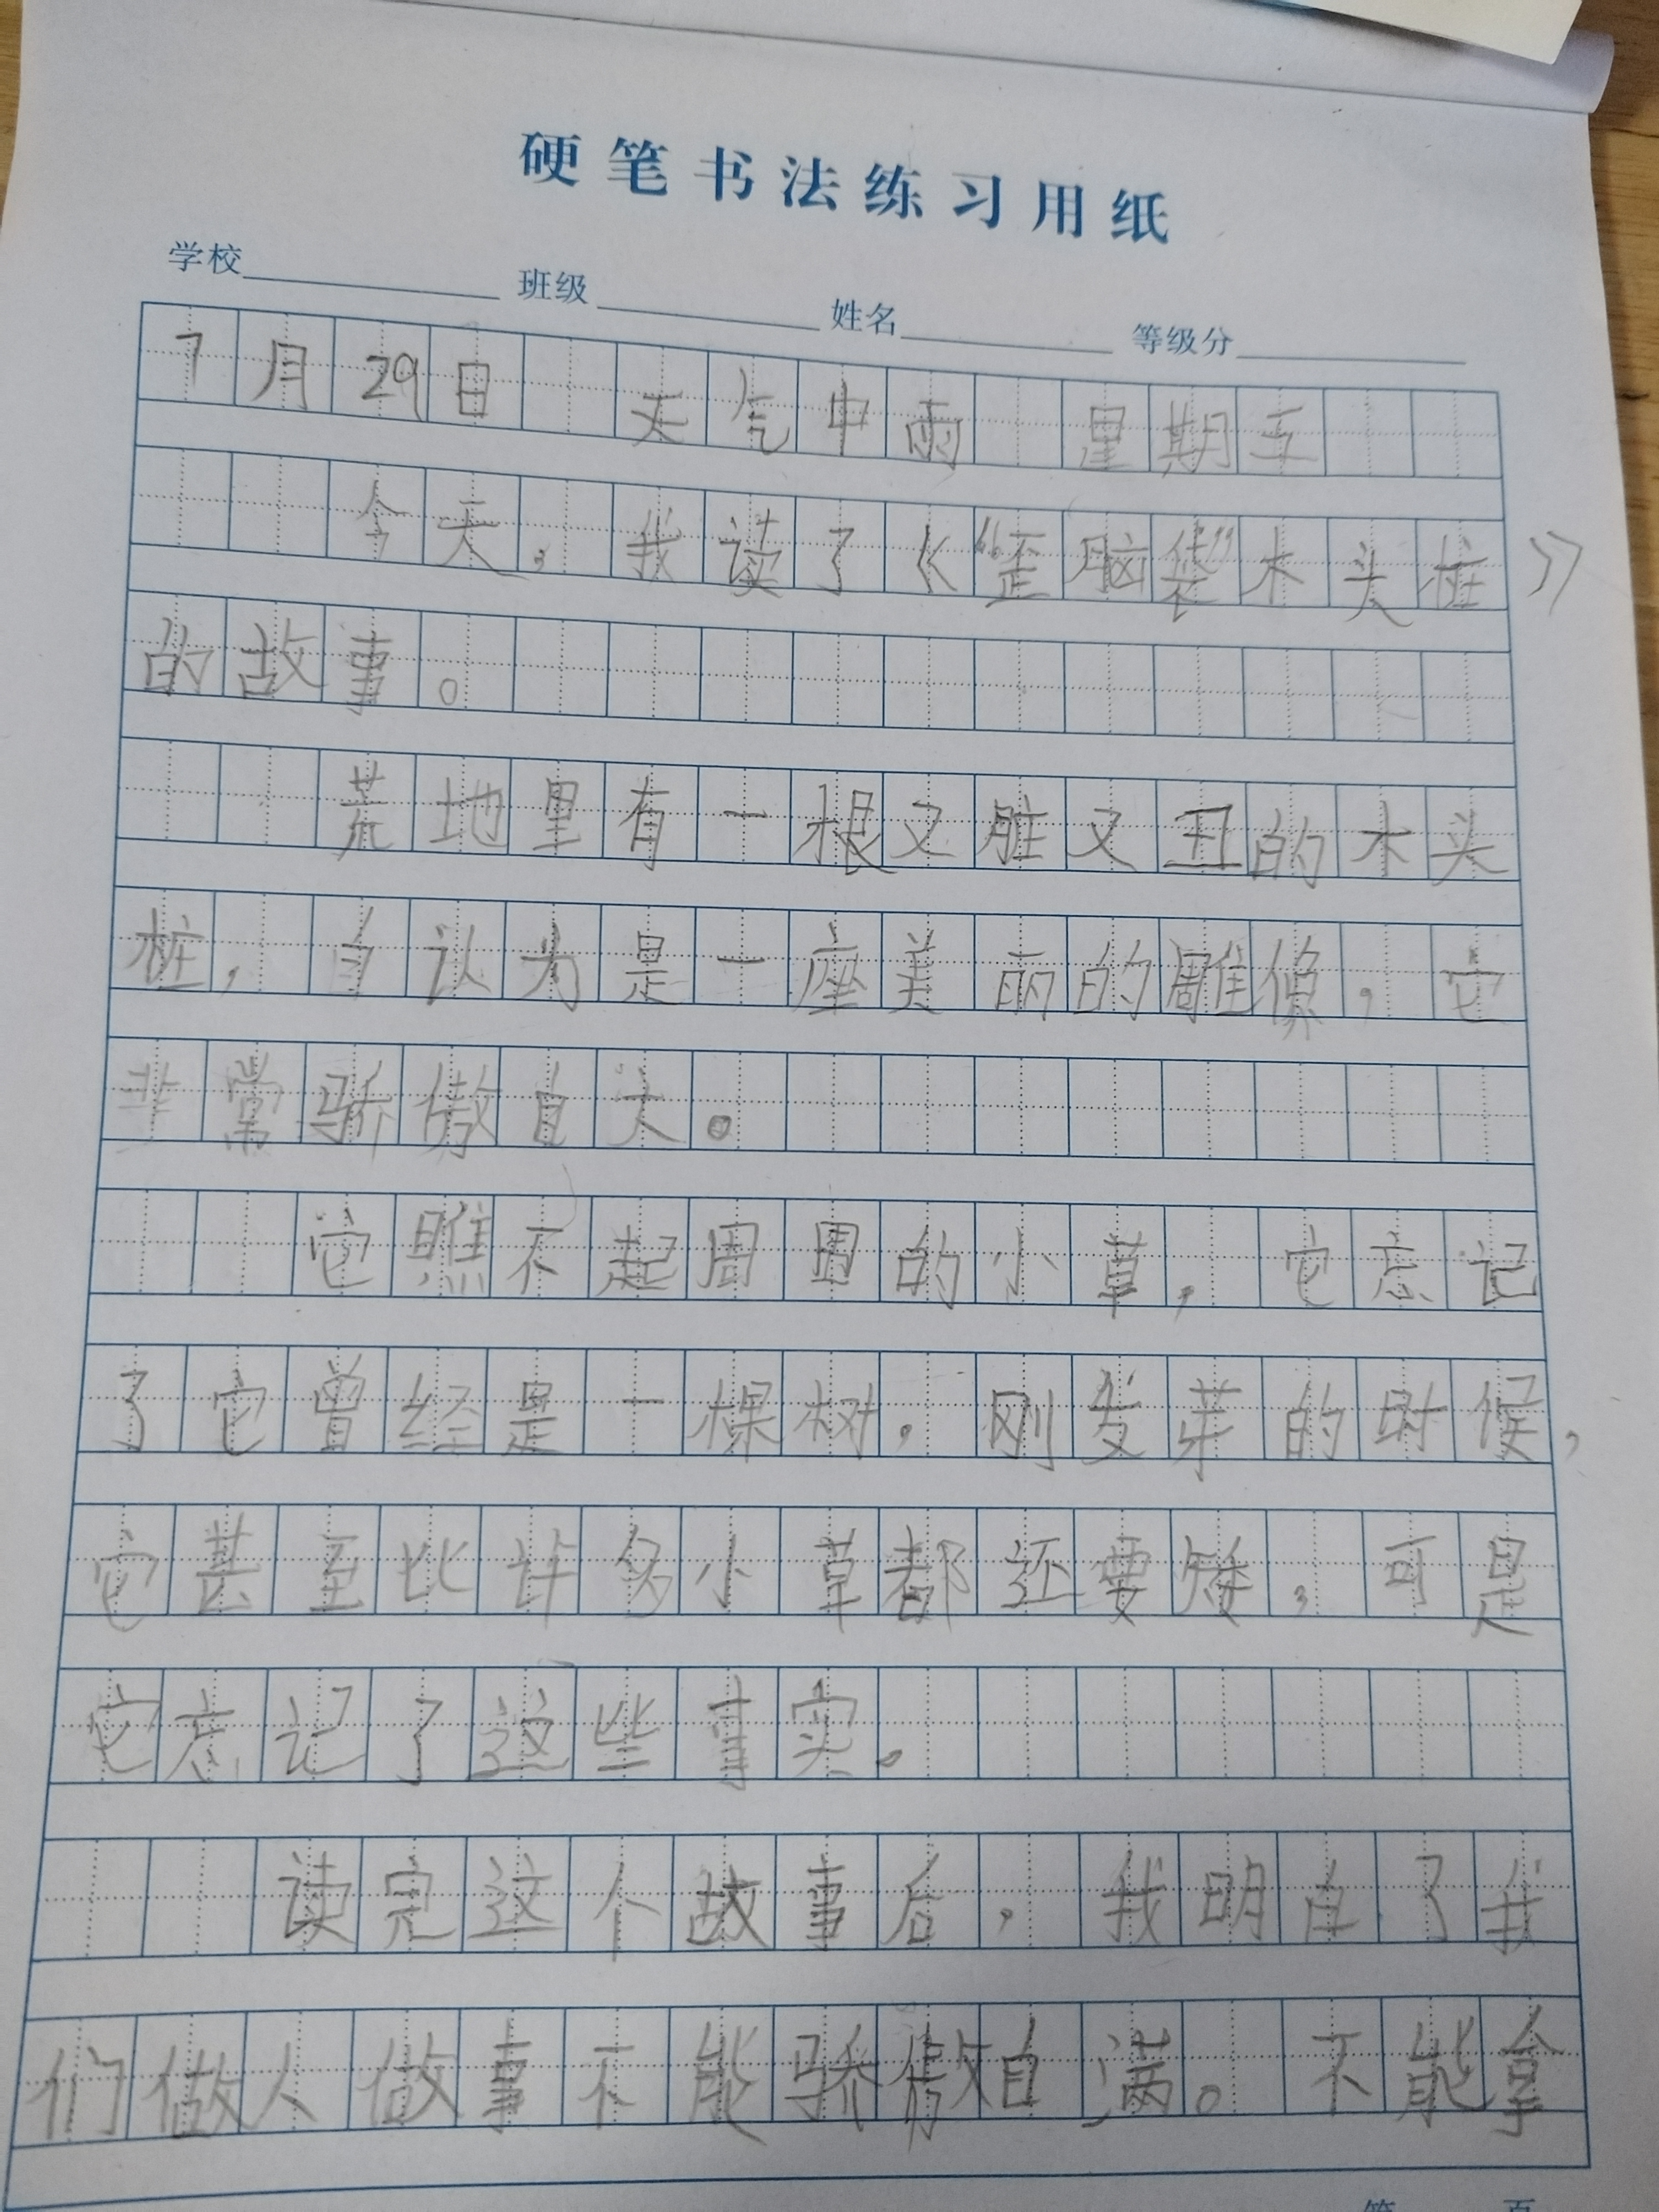 硬笔书法练习用纸
学校 班级 姓名 等级分
7月29日 天气中雨 星期五
今天，我读了《“歪脑袋”木头桩》
的故事。
荒地里有一根又脏又丑的木头
桩，自认为是一座美丽的雕像，它
非常骄傲自大。
它瞧不起周围的小草，它忘记
了它曾经是一棵树，刚发芽的时候，
它甚至比许多小草都还要矮，可是
它忘记了这些事实。
读完这个故事后，我明白了我
们做人做事不能骄傲自满。不能拿
第 页